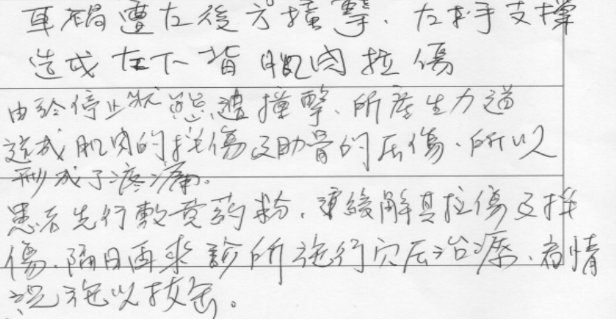 車禍遭左後方撞擊、左手支撐
造成左下背肌肉拉傷
由於停止狀態遭撞擊、所產生力道
造成肌肉的挫傷及肋骨的压傷、所以
形成了疼痛。
患者先行敷黄药粉、緩解其拉傷及挫
傷、隔日再來診所施行穴压治療、看情
況施以拔缶。